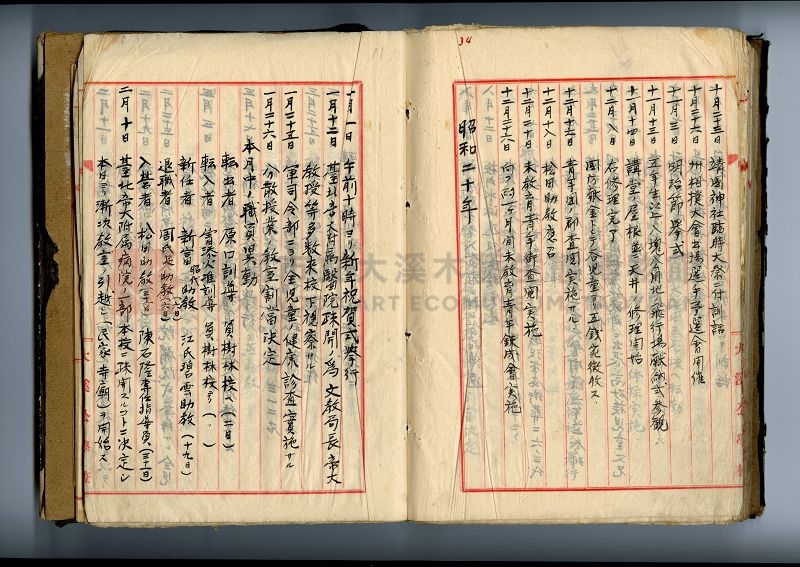 34
十月二十三日 靖國神社臨時大祭ニ付訓話
十月二十六日 州相撲大會出場選手予選會開催
十一月三日 明治節拳式
十一月十三日 五年生以上八塊八角地ノ飛行場献納式参観
十一月十四日 講堂ノ屋根並ニ天井ノ修理開始
十二月八日 右修理完了
國防献金トシテ各兒童ヨリ五錢宛徴收ス
十二月十六日 青年團ノ郡査閲実施サル
十二月十八日 松田助教應召
十二月二十日 未教育青年郡査閲実施
十二月二十六日 向フ約一ヶ月間未教育青年錬成會実施
昭和二十年
一月一日 午前十時ヨリ新年祝賀式拳行
一月十二日 臺北帝大附属醫院疎開ノ為文教局長帝大
教授等多数来校下視察サル
一月二十五日 軍司令部ニヨリ全兒童ノ健康診査実施サル
一月二十六日 分散授業ノ教室割當決定
本月中ノ職員異動
転出者 原口訓導 員樹林校ヘ(二日)
転入者 富永准訓導 員樹林校ヨリ(〃)
新任者 新宮昭助教 江氏碧雲助教(十九日)
退職者 周氏足助教
入営者 松田助教 陳石隆専任指導員(三十日)
二月十日 臺北帝大附属病院ノ一部本校ニ疎開スルコトニ決定シ
本日ヨリ漸次教室ノ引越シ(民家、寺廟)ヲ開始ス
大溪木
ART ECO